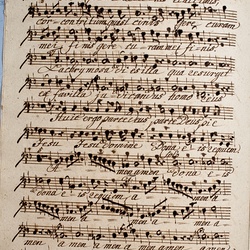 cor contritum quasi cinis gere curam
mei finis gere curam mei finis
Lachrymosa dies illa qua resurget
ex favilla judicandus homo reus
Huic ergo parce deus parce deus pie
Jesu Jesu Domine Dona eis requiem
amen dona eis
dona eis requiem a
men a men a
men a men a men a men a men